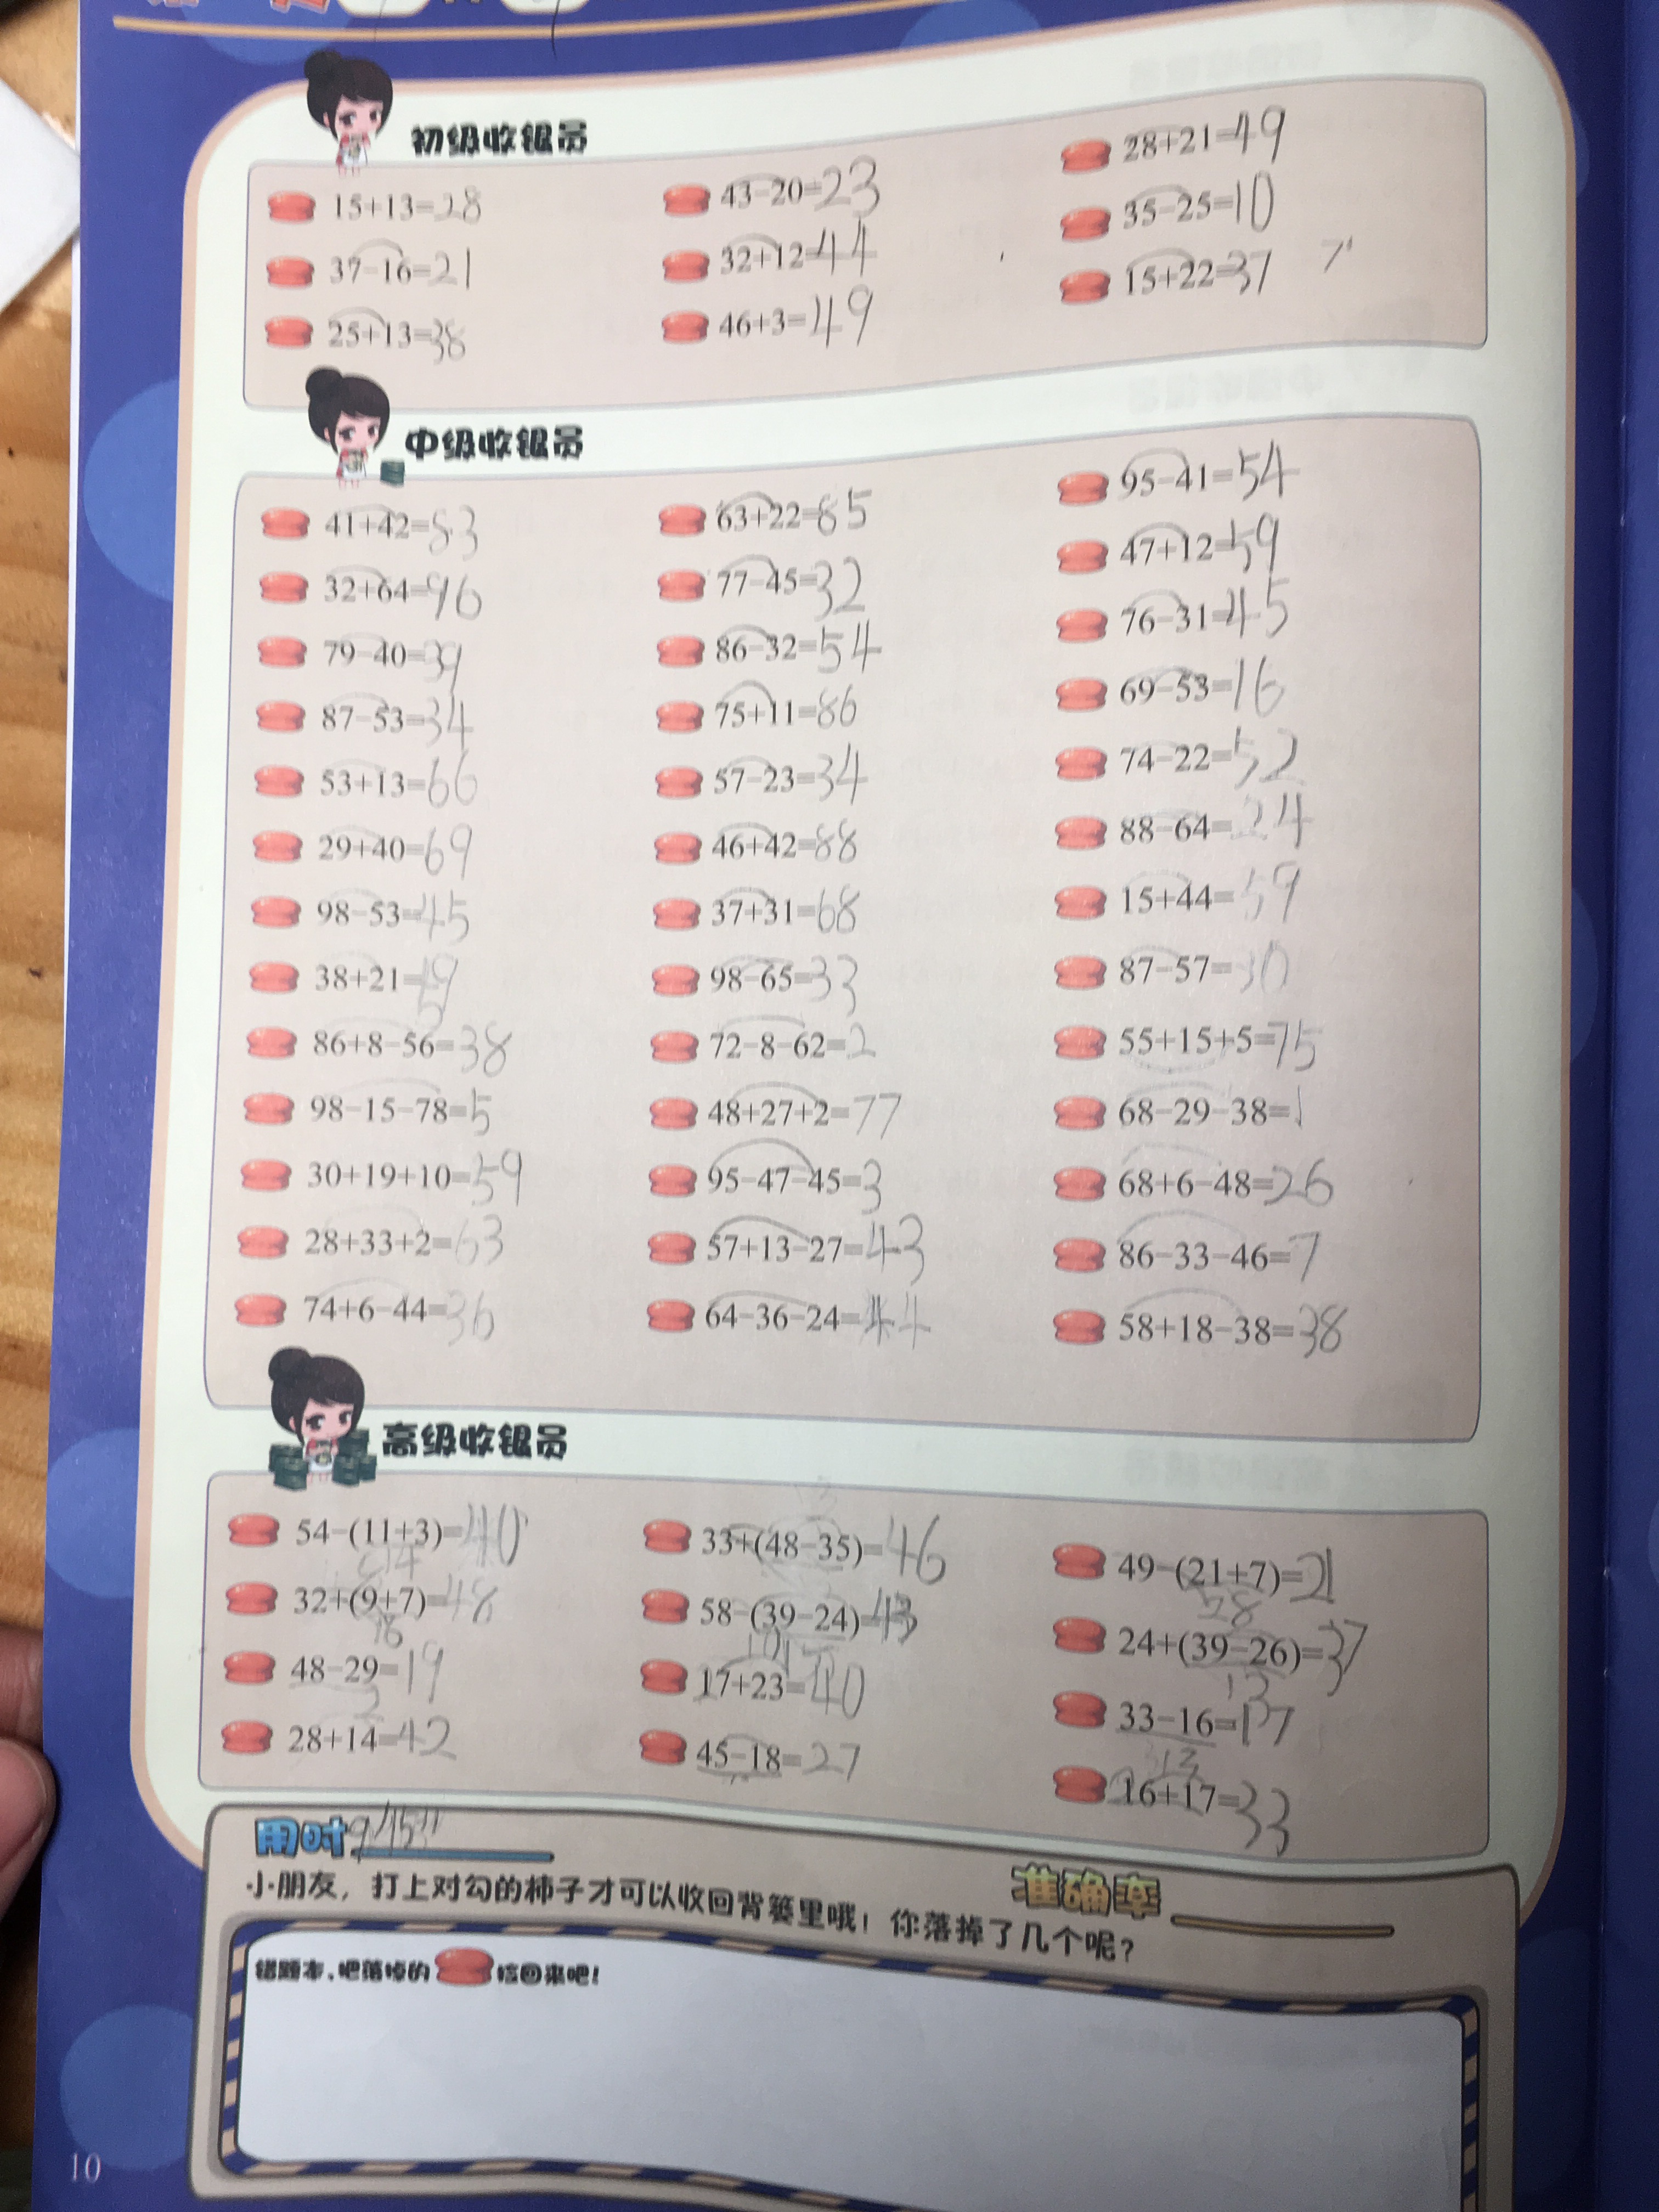 初级收银员
15+13=28
37-16=21
25+13=38
43-20=23
32+12=44
46+3=49
28+21=49
35-25=10
15+22=37
中级收银员
41+42=83
32+64=96
79-40=39
87-53=34
53+13=66
29+40=69
98-53=45
38+21=59
86+8-56=38
98-15-78=5
30+19+10=59
28+33+2=63
74+6-44=36
63+22=85
77-45=32
86-32=54
75+11=86
57-23=34
46+42=88
37+31=68
98-65=33
72-8-62=2
48+27+2=77
95-47-45=3
57+13-27=43
64-36-24=
95-41=54
47+12=59
76-31=45
69-53=16
74-22=52
88-64=24
15+44=59
87-57=30
55+15+5=75
68-29-38=1
68+6-48=26
86-33-46=7
58+18-38=38
高级收银员
54-(11+3)=40
14
32+(9+7)=48
16
48-29=19
28+14=42
33+(48-35)=46
58-(39-24)=43
17+23=40
45-18=27
49-(21+7)=21
28
24+(39-26)=37
13
33-16=17
16+17=33
用时9'15"
准确率
小朋友，打上对勾的柿子才可以收回背篓里哦！你落掉了几个呢？
错题本，把落掉的 捡回来吧！
10